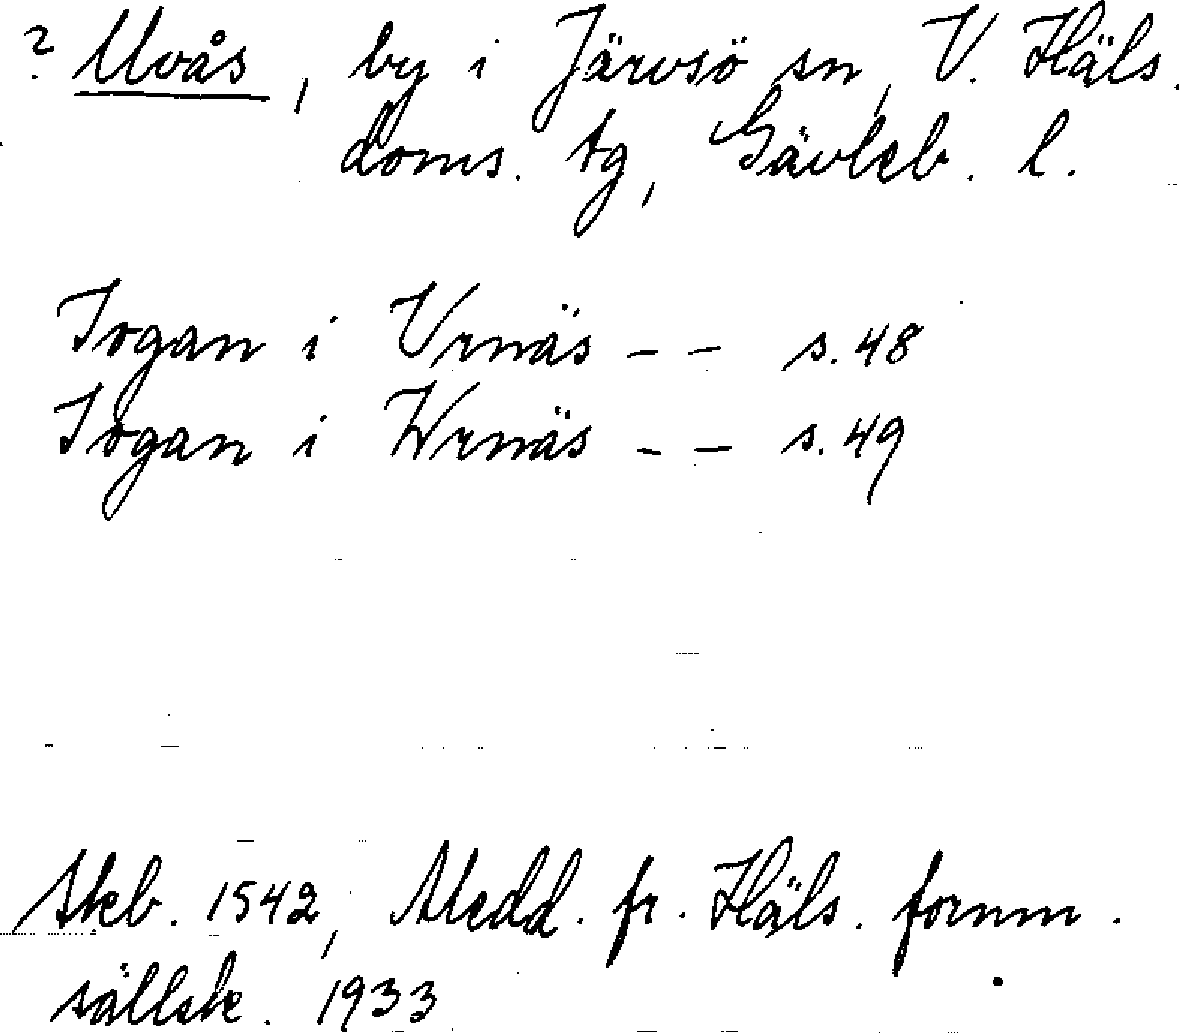 ? Uvås, by i Järvsö sn, V. Häls.
doms. tg, Gävleb. l.
Ingan i Vrnäs - - s. 48
Ingan i Wrnäs - - s. 49
Skeb. 1542, Medd. fr. Häls. fornm.
sällsk. 1933